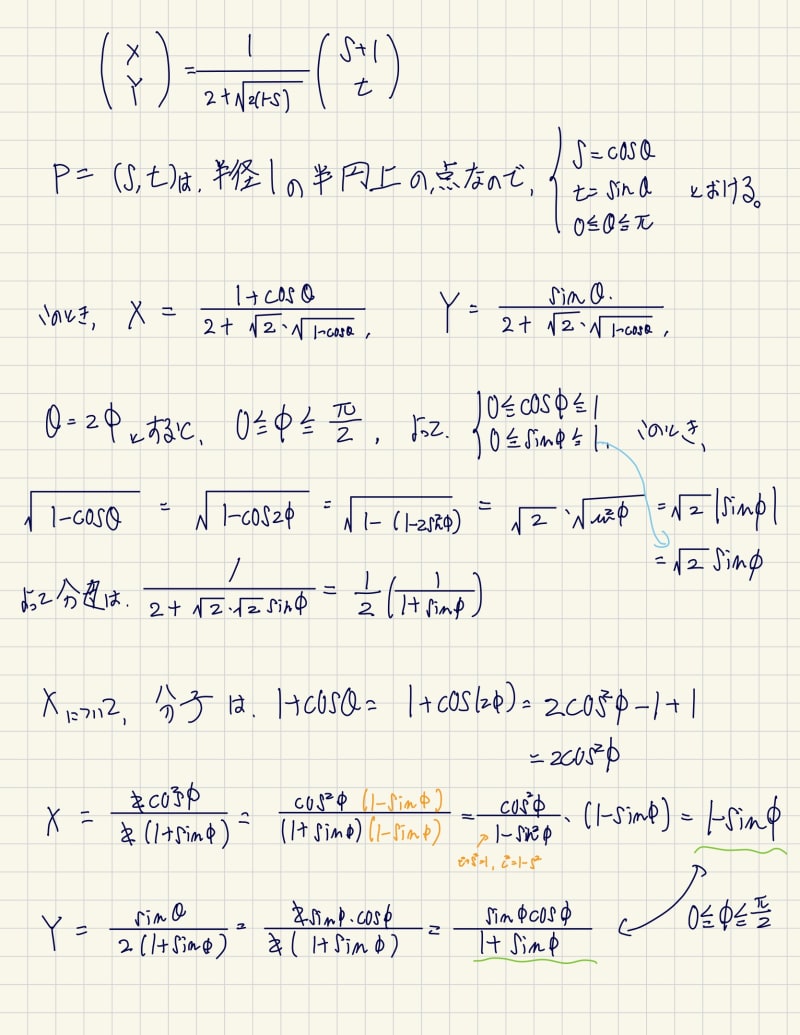 (X Y) = 1/(2+√2(1-S)) (S+1 t)
P = (S,t)は、半径1の半円上の点なので、 { S=cosθ t=sinθ 0≦θ≦π とおける。
このとき, X = (1+cosθ)/(2+√2・√1-cosθ), Y = sinθ/(2+√2・√1-cosθ),
θ=2φとすると、 0≦φ≦π/2, よって、 { 0≦cosφ≦1 0≦sinφ≦1, このとき,
√1-cosθ = √1-cos2φ = √1-(1-2sin²φ) = √2・√sin²φ = √2|sinφ|
= √2 sinφ
よって分母は、 1/(2+√2・√2 sinφ) = 1/2 (1/(1+sinφ))
Xについて, 分子は、 1+cosθ = 1+cos(2φ) = 2cos²φ-1+1
= 2cos²φ
X = 2cos²φ/2(1+sinφ) = cos²φ(1-sinφ)/(1+sinφ)(1-sinφ) = cos²φ/(1-sin²φ)・(1-sinφ) = 1-sinφ
c²+s²=1, c²=1-s²
Y = sinθ/2(1+sinφ) = 2sinφ・cosφ/2(1+sinφ) = sinφcosφ/(1+sinφ) 0≦φ≦π/2